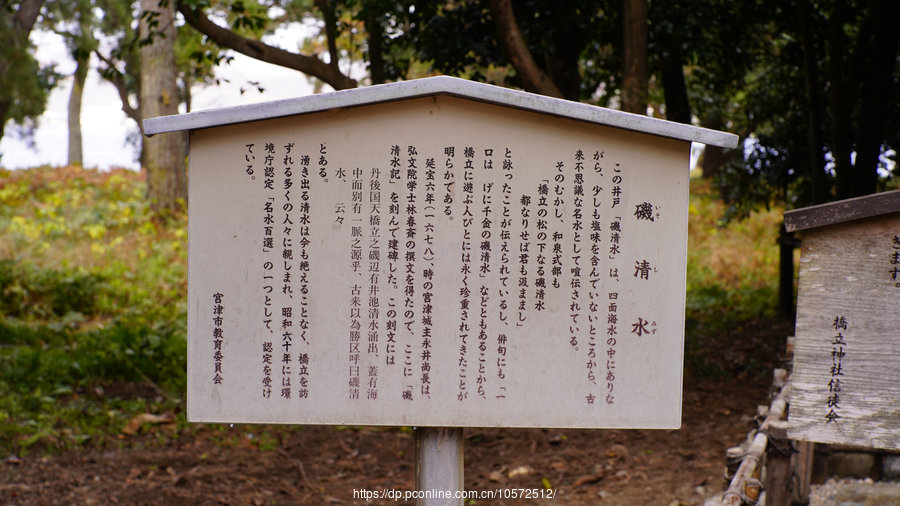 磯清水
いそしみず
この井戸「磯清水」は、四面海水の中にありな
がら、少しも塩味を含んでいないところから、古
来不思議な名水として喧伝されている。
そのむかし、和泉式部も
「橋立の松の下なる磯清水
都なりせば君も汲ままし」
と詠ったことが伝えられているし、俳句にも「一
口は げに千金の磯清水」などともあることから、
橋立に遊ぶ人びとには永く珍重されてきたことが
明らかである。
延宝六年(一六七八)、時の宮津城主永井尚長は、
弘文院学士林春斎の撰文を得たので、ここに「磯
清水記」を刻んで建碑した。この刻文には
丹後国天橋立之磯辺有井池清水涌出、蓋有海
中而別有一脈之源乎、古来以為勝区呼曰磯清
水、 云々
とある。
湧き出る清水は今も絶えることなく、橋立を訪
ずれる多くの人々に親しまれ、昭和六十年には環
境庁認定「名水百選」の一つとして、認定を受け
ている。
宮津市教育委員会
きます。
橋立神社信徒会
https://dp.pconline.com.cn/10572512/